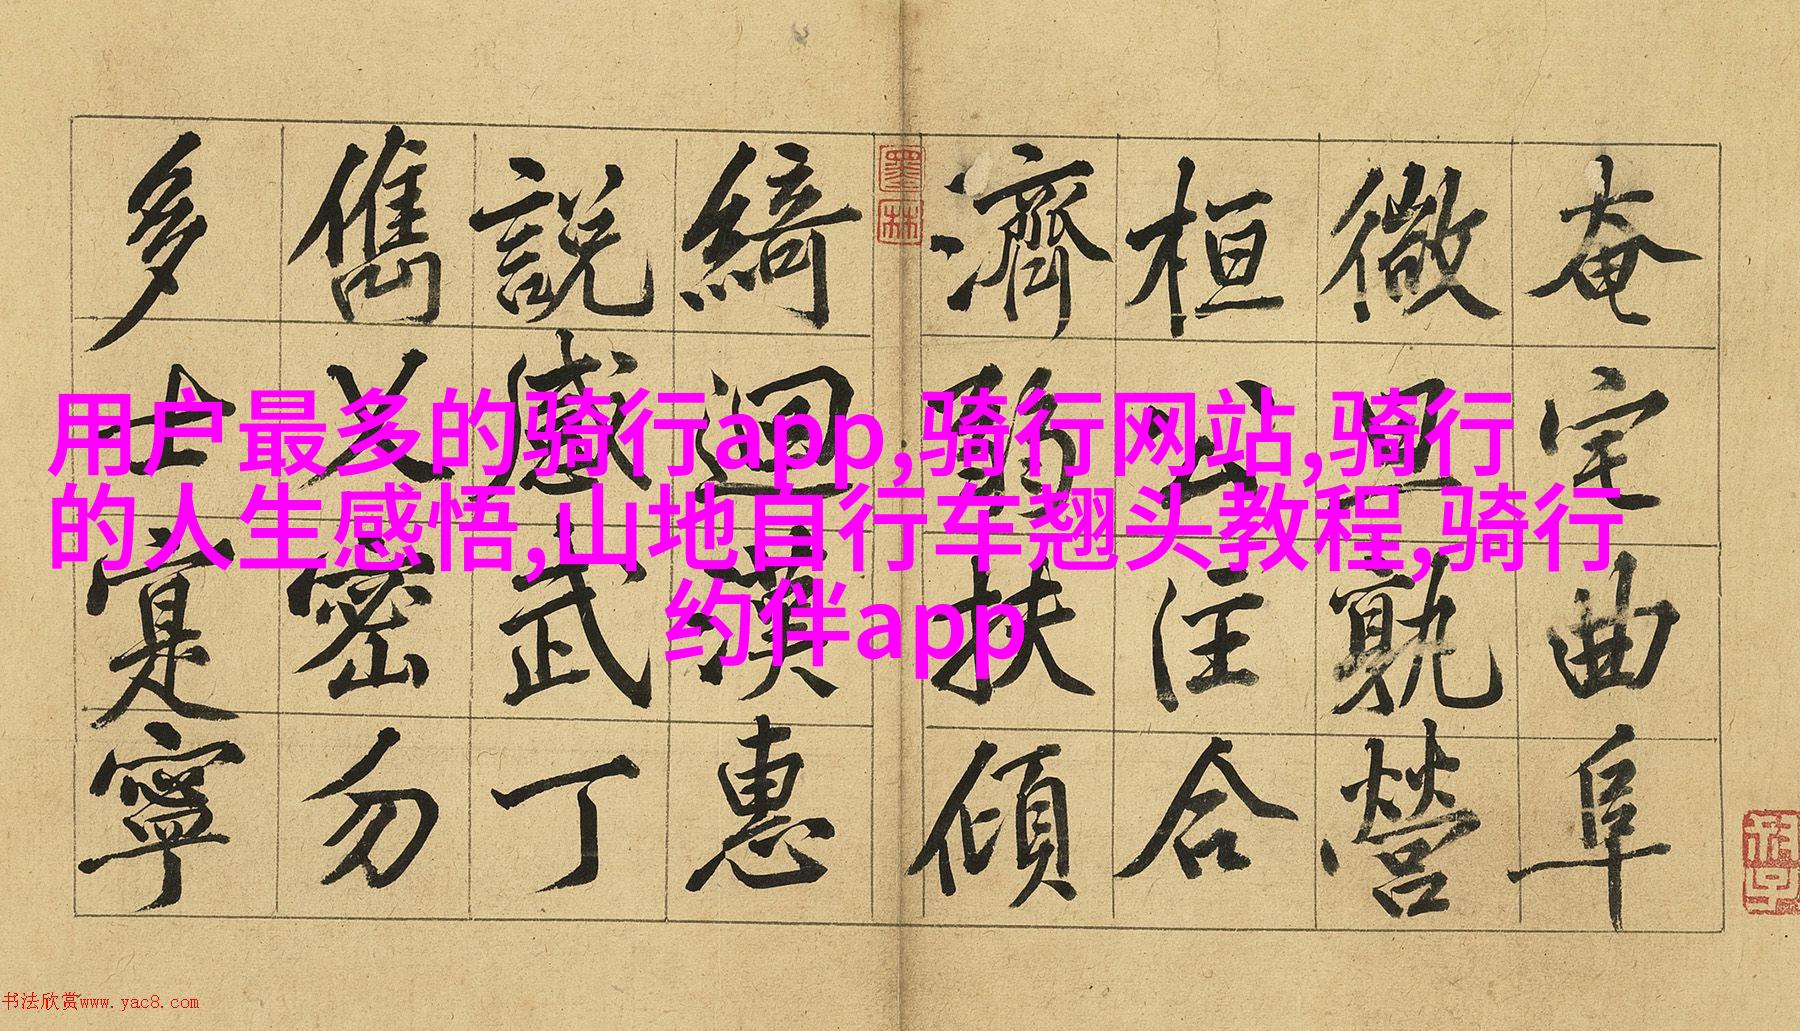 用户最多的骑行app,骑行网站,骑行
的人生感悟,山地自行车翘头教程,骑行
约伴app
奄宅曲阜
微旦孰營
桓公匡合
濟弱扶傾
綺迴漢惠
説感武丁
儁乂密勿
多士寔寧
墨林
书法欣赏www.yac8.com